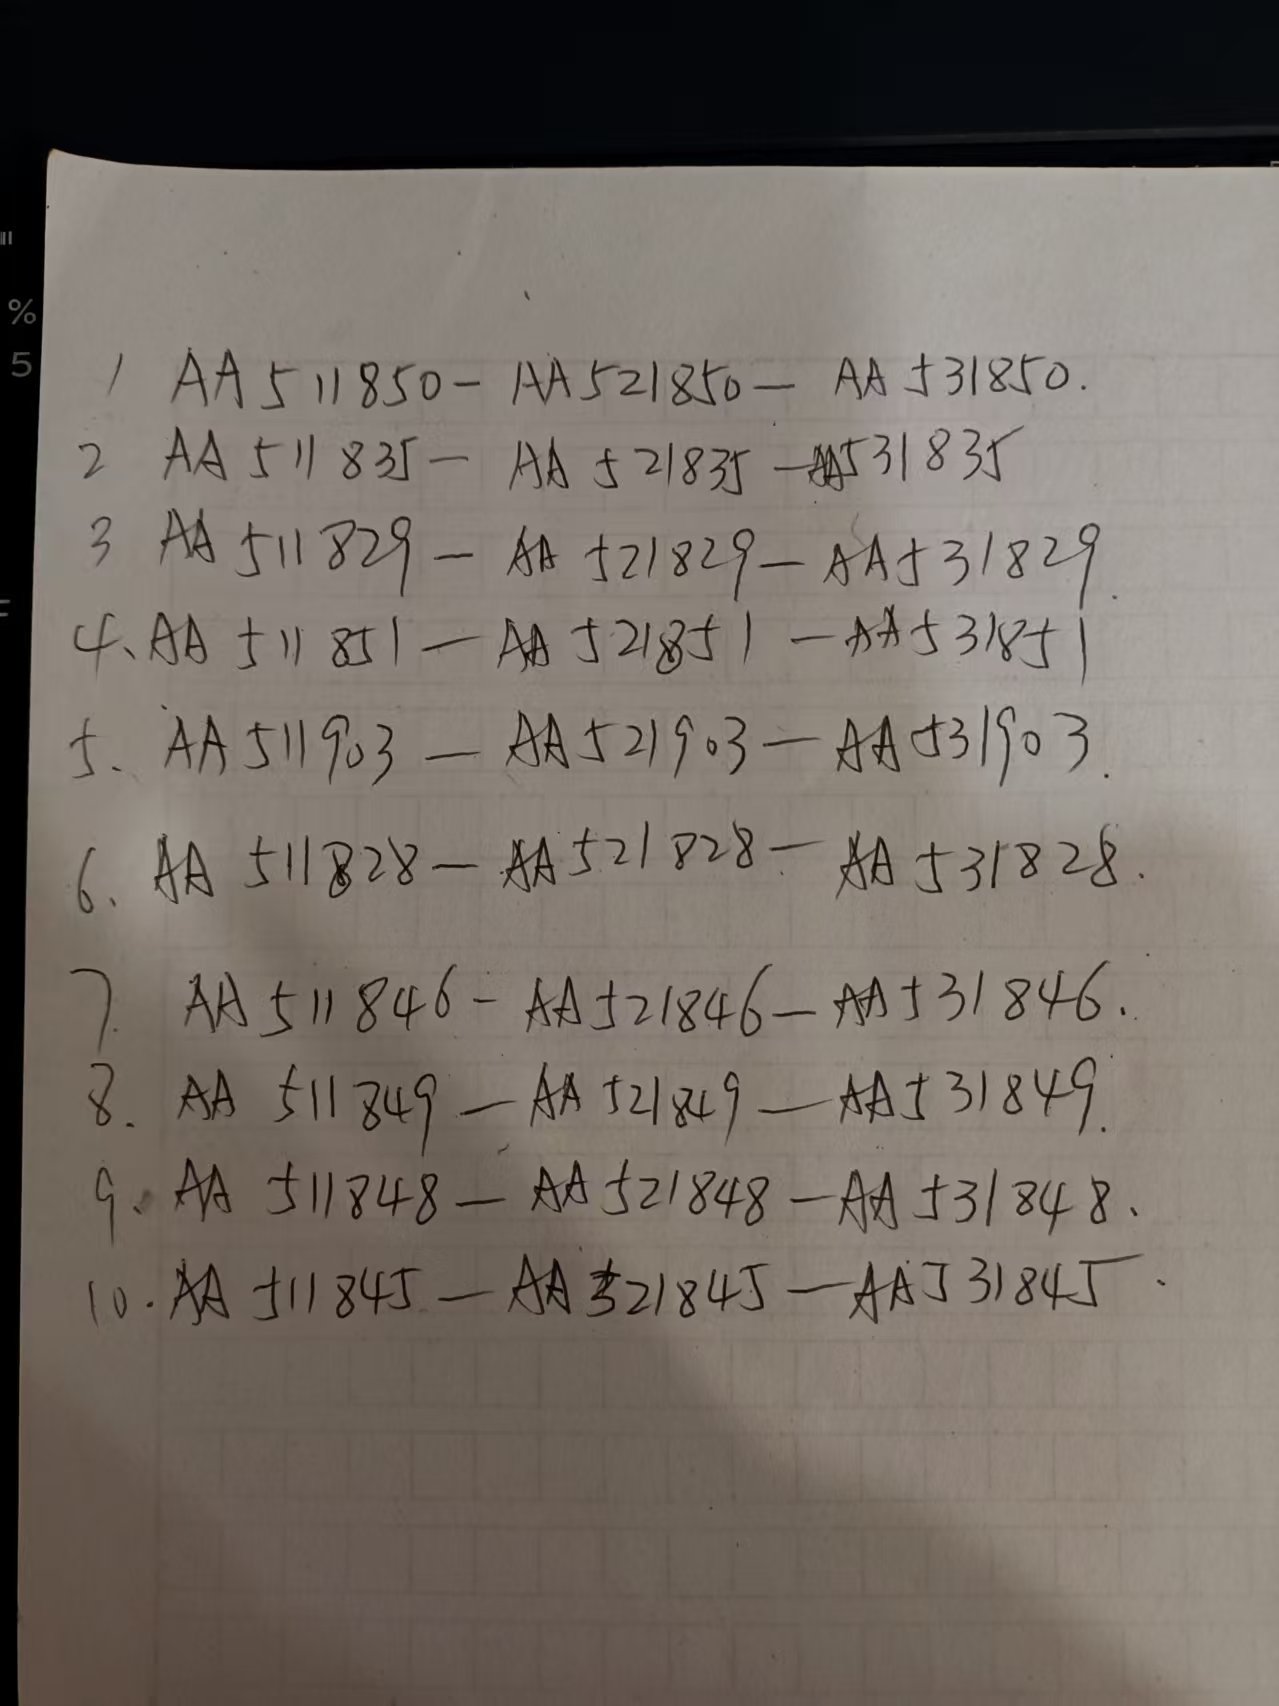 %
5
1 AA511850- AA521850- AA531850.
2 AA511835- AA521835-AA531835
3 AA511829- AA521829- AA531829.
4、AA511851- AA521851-AA531851
5、AA511903- AA521903- AA531903.
6、AA511828- AA521828- AA531828.
7. AA511846- AA521846- AA531846.
8. AA511849- AA521849- AA531849.
9. AA511848- AA521848- AA531848.
10. AA511845- AA521845- AA531845.